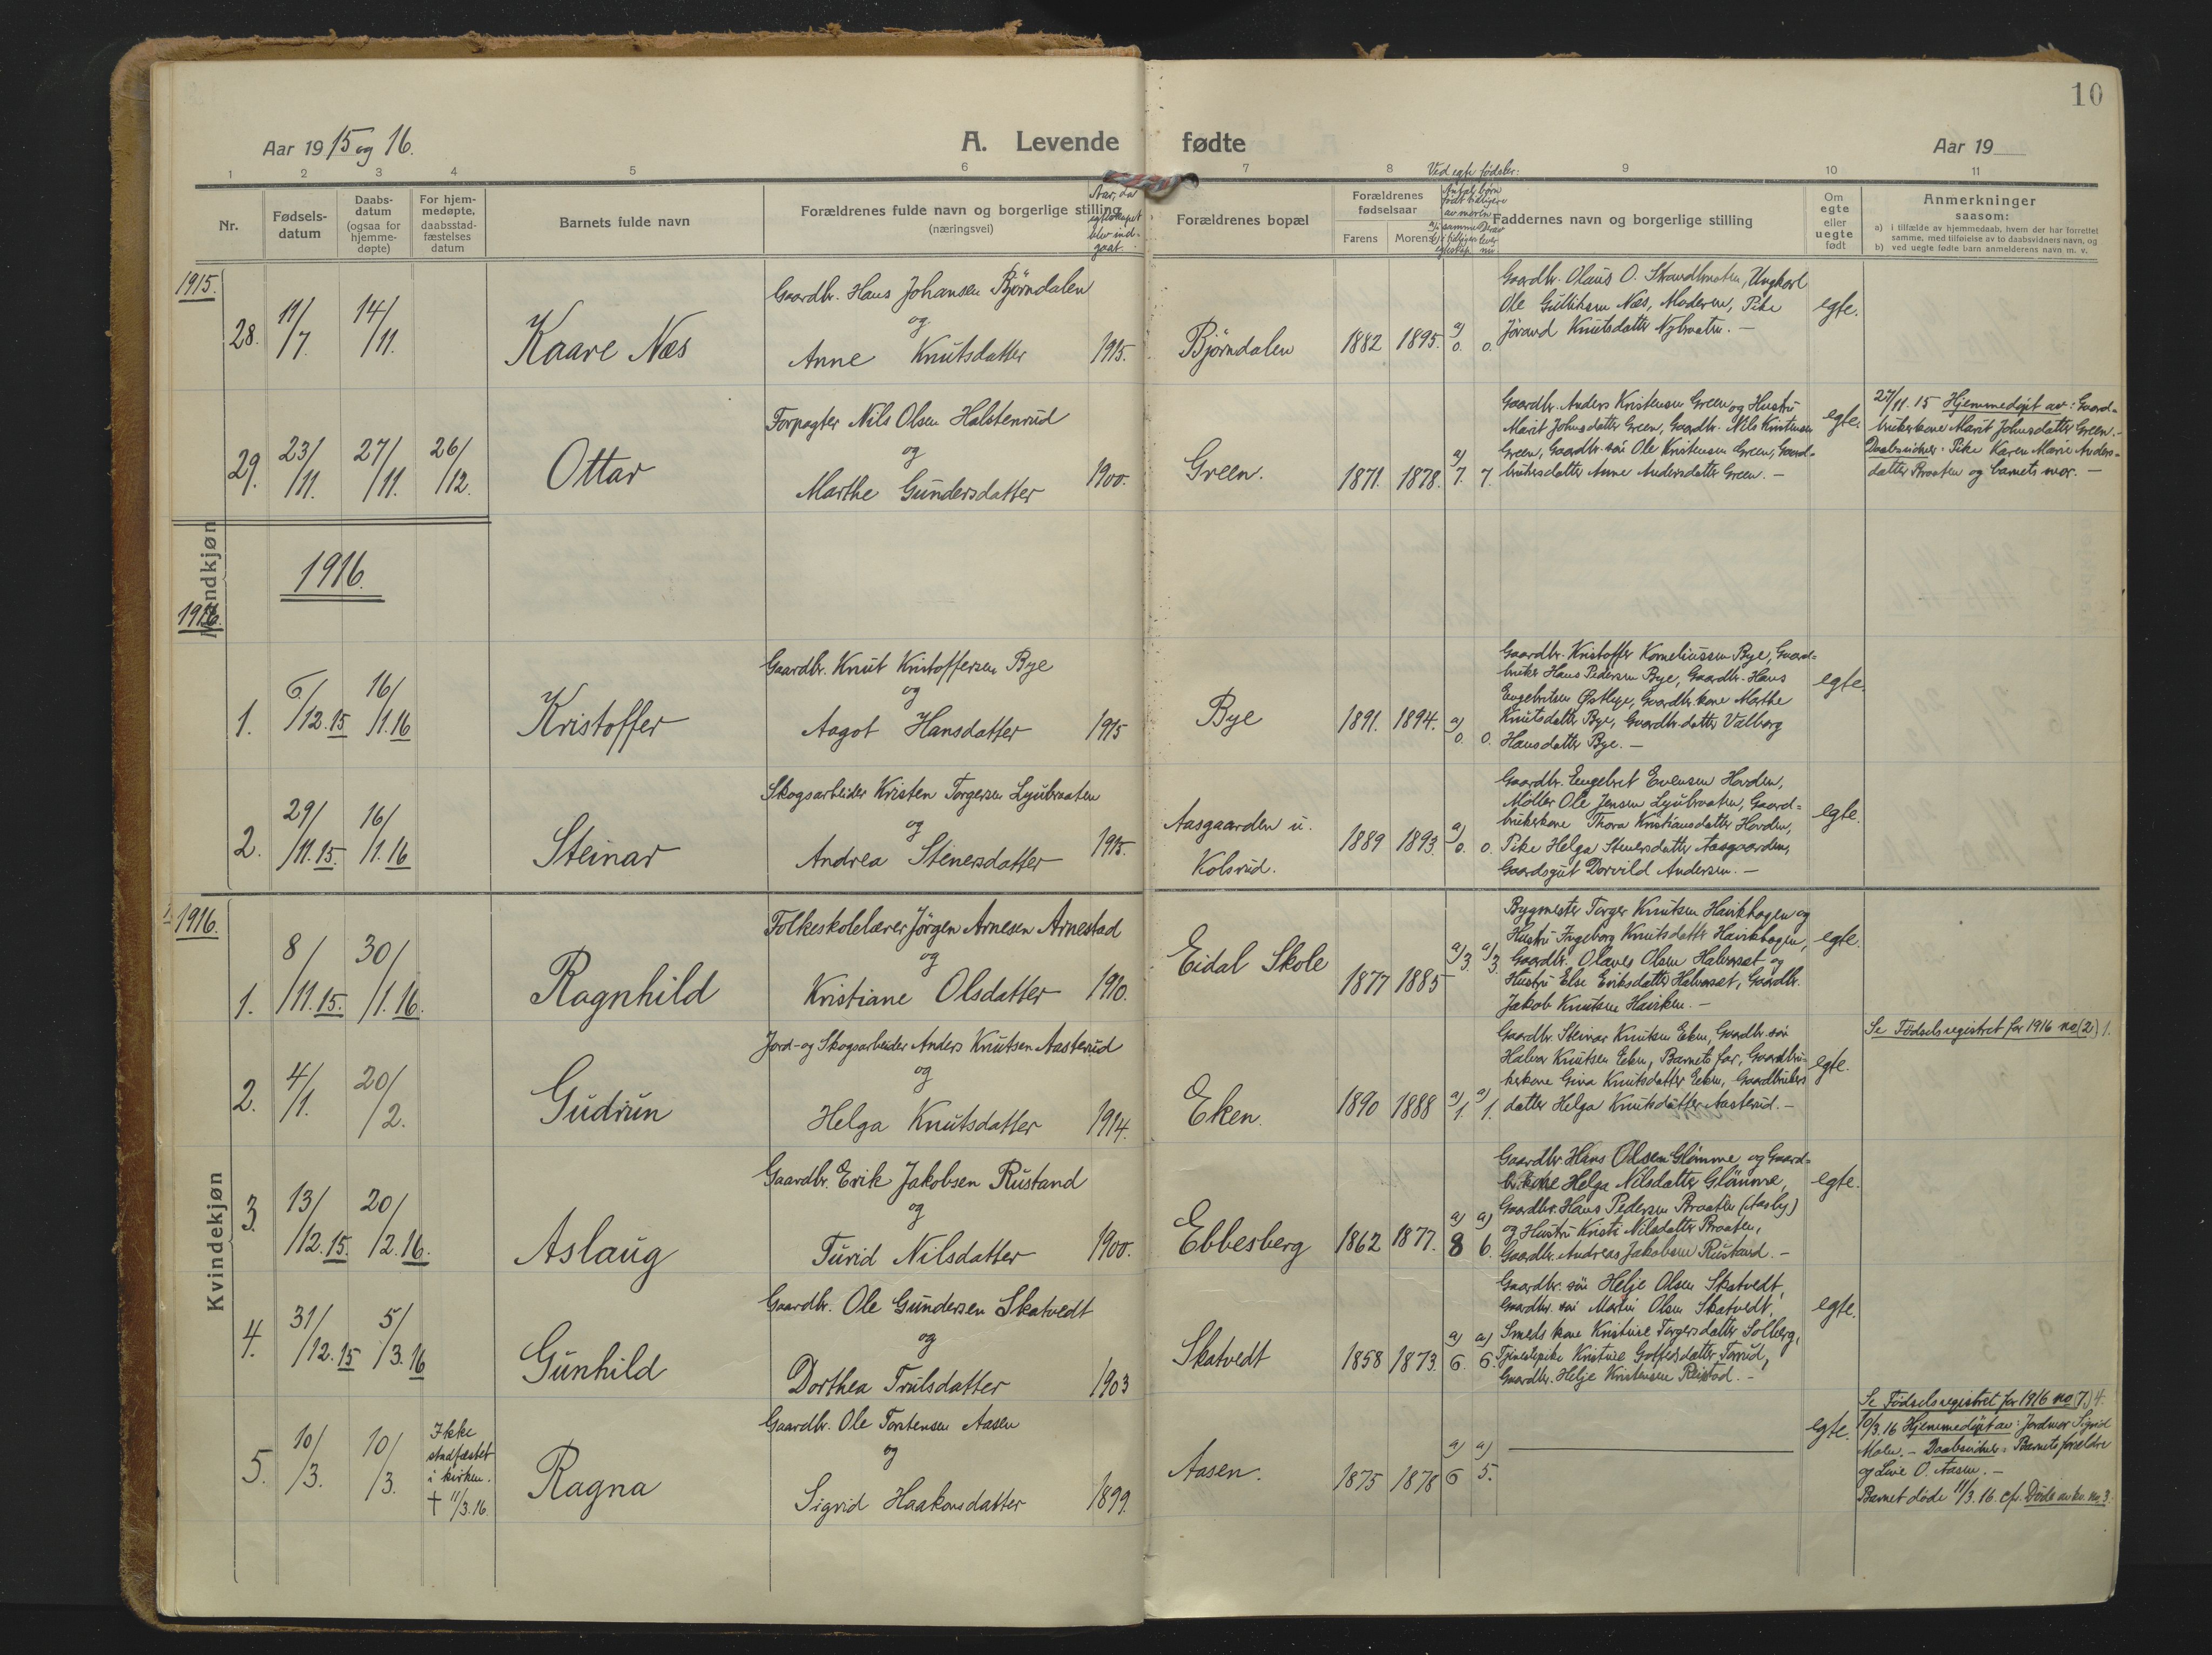 10
Aar 19 15 og 16.
A. Levende fødte
Aar 19
1 2 3 4 5 6 7 8 9 10 11
Ved egte fødsler:
Nr.
Fødsels-
datum
Daabs-
datum
(ogsaa for
hjemme-
døpte)
For hjem-
medøpte,
daabsstad-
fæstelses
datum
Barnets fulde navn
Forældrenes fulde navn og borgerlige stilling
(næringsvei)
Aar, da
egteskapet
blev ind-
gaat.
Forældrenes bopæl
Forældrenes
fødselsaar
Farens
Morens
Antal børn
født tidligere
av moren
Faddernes navn og borgerlige stilling
Om
egte
eller
uegte
født
Anmerkninger
saasom:
a) i tilfælde av hjemmedaab, hvem der har forrettet
samme, med tilføielse av to daabsvidners navn, og
b) ved uegte fødte barn anmelderens navn m. v.
1915.
28.
11/7.
14/11.
Kaare Næs
Gaardbr. Hans Johansen Bjørndalen
og
Anne Knutsdatter
1915.
Bjørndalen
1882 1895.
a) 0. 0.
Gaardbr. Olaus O. Strandbraaten, Ungkarl
Ole Gulliksen Næs, Moderen, Pike
Jørand Knutsdatter Nybraaten. —
egte.
29.
23/11.
27/11.
26/12.
Ottar
Forpagter Nils Olsen Halstenrud
og
Marthe Gundersdatter
1900.
Green.
1871. 1878.
a) 7. 7.
Gaardbr. Anders Kristensen Green og Hustru
Marit Johnsdatter Green, Gaardbr. Nils Kristensen
Green, Gaardbr. søn Ole Kristensen Green, Gaard-
brukersdatter Anne Andersdatter Green. —
egte.
27/11. 15 Hjemmedøpt av: Gaard-
brukerkone Marit Johnsdatter Green. -
Daabsvidner: Pike Karen Marie Anders-
datter Braaten og barnets mor. —
Mandkjøn
1916.
1916.
1.
6/12.15
16/1.16
Kristoffer
Gaardbr. Knut Kristoffersen Bye
og
Aagot Hansdatter
1915
Bye
1891. 1894.
a) 0. 0.
Gaardbr. Kristoffer Korneliussen Bye, Gaard-
bruker Hans Pedersen Bye, Gaardbr. Hans
Engebritsen Østbye, Gaardbr. kone Marthe
Knutsdatter Bye, Gaardbr. datter Valborg
Hansdatter Bye. —
egte.
2.
29/11.15.
16/1.16
Steinar
Skogsarbeider Kristen Torgersen Lyubraaten
og
Andrea Stenersdatter
1915.
Aasgaarden u.
Kolsrud.
1889 1893.
a) 0. 0.
Gaardbr. Engebret Evensen Hovden,
Møller Ole Jensen Lyubraaten, Gaard-
brukerkone Thora Kristiansdatter Hovden,
Pike Helga Stenersdatter Aasgaarden,
Gaardsgut Dorvild Andersen. —
egte.
1916.
Kvindekjøn
1.
8/11.15.
30/1.16.
Ragnhild
Folkeskolelærer Jørgen Arnesen Arnestad
og
Kristiane Olsdatter
1910.
Eidal Skole
1877 1885
a) 3. a) 3.
Bygmester Torger Knutsen Haivkhagen og
Hustru Ingeborg Knutsdatter Haivkhagen,
Gaardbr. Olaves Olsen Halvorset og
Hustru Else Eriksdatter Halvorset, Gaardbr.
Jakob Knutsen
egte.
2.
4/1.
20/2.
Gudrun
Jord- og Skogsarbeider Anders Knutsen Aasterud
og
Helga Knutsdatter
1914.
Eken.
1890 1888
a) 1. a) 1.
Gaardbr. Steinar Knutsen Eken, Gaardbr. søn
Halvor Knutsen Eken, Barnets far, Gaardbru-
kerkone Gina Knutsdatter Eken, Gaardbrukers
datter Helga Knutsdatter Aasterud. —
egte.
Se Fødselsregistret for 1916 no (2) 1.
3.
13/12.15.
20/2.16.
Aslaug
Gaardbr. Erik Jakobsen Rustand
og
Turid Nilsdatter
1900.
Ebbesberg
1862 1877.
a) 8 a) 6.
Gaardbr. Hans Olsen Glømme og Gaard-
br. kone Helga Nilsdatter Glømme,
Gaardbr. Hans Pedersen Braaten (Aasby)
og Hustru Kristi Nilsdatter Braaten,
Gaardbr. Andreas Jakobsen Rustand. —
egte.
4.
31/12.15
5/3.16
Gunhild
Gaardbr. Ole Gundersen Skatvedt
og
Dorthea Trulsdatter
1903
Skatvedt
1858 1873.
a) 6. a) 6.
Gaardbr. søn Helje Olsen Skatvedt,
Gaardbr. søn Martin Olsen Skatvedt,
Smeds kone Kristine Torgersdatter Solberg,
Tjenestepike Kristine
Gaardbr. Helje Kristensen Reistad. —
egte.
5.
10/3.
10/3.
Ikke
stadfæstet
i kirken.
† 11/3.16.
Ragna
Gaardbr. Ole Torstensen Aasen
og
Sigrid Haakonsdatter
1899.
Aasen.
1875 1878
a) 6 a) 5.
egte.
Se Fødselsregistret for 1916 no (7.) 4.
10/3.16 Hjemmedøpt av: Jordmor Sigrid
Moen. — Daabsvidner: Barnets forældre
og Live O. Aasen. —
Barnet døde 11/3.16. cfr. Døde av kv. no. 3.